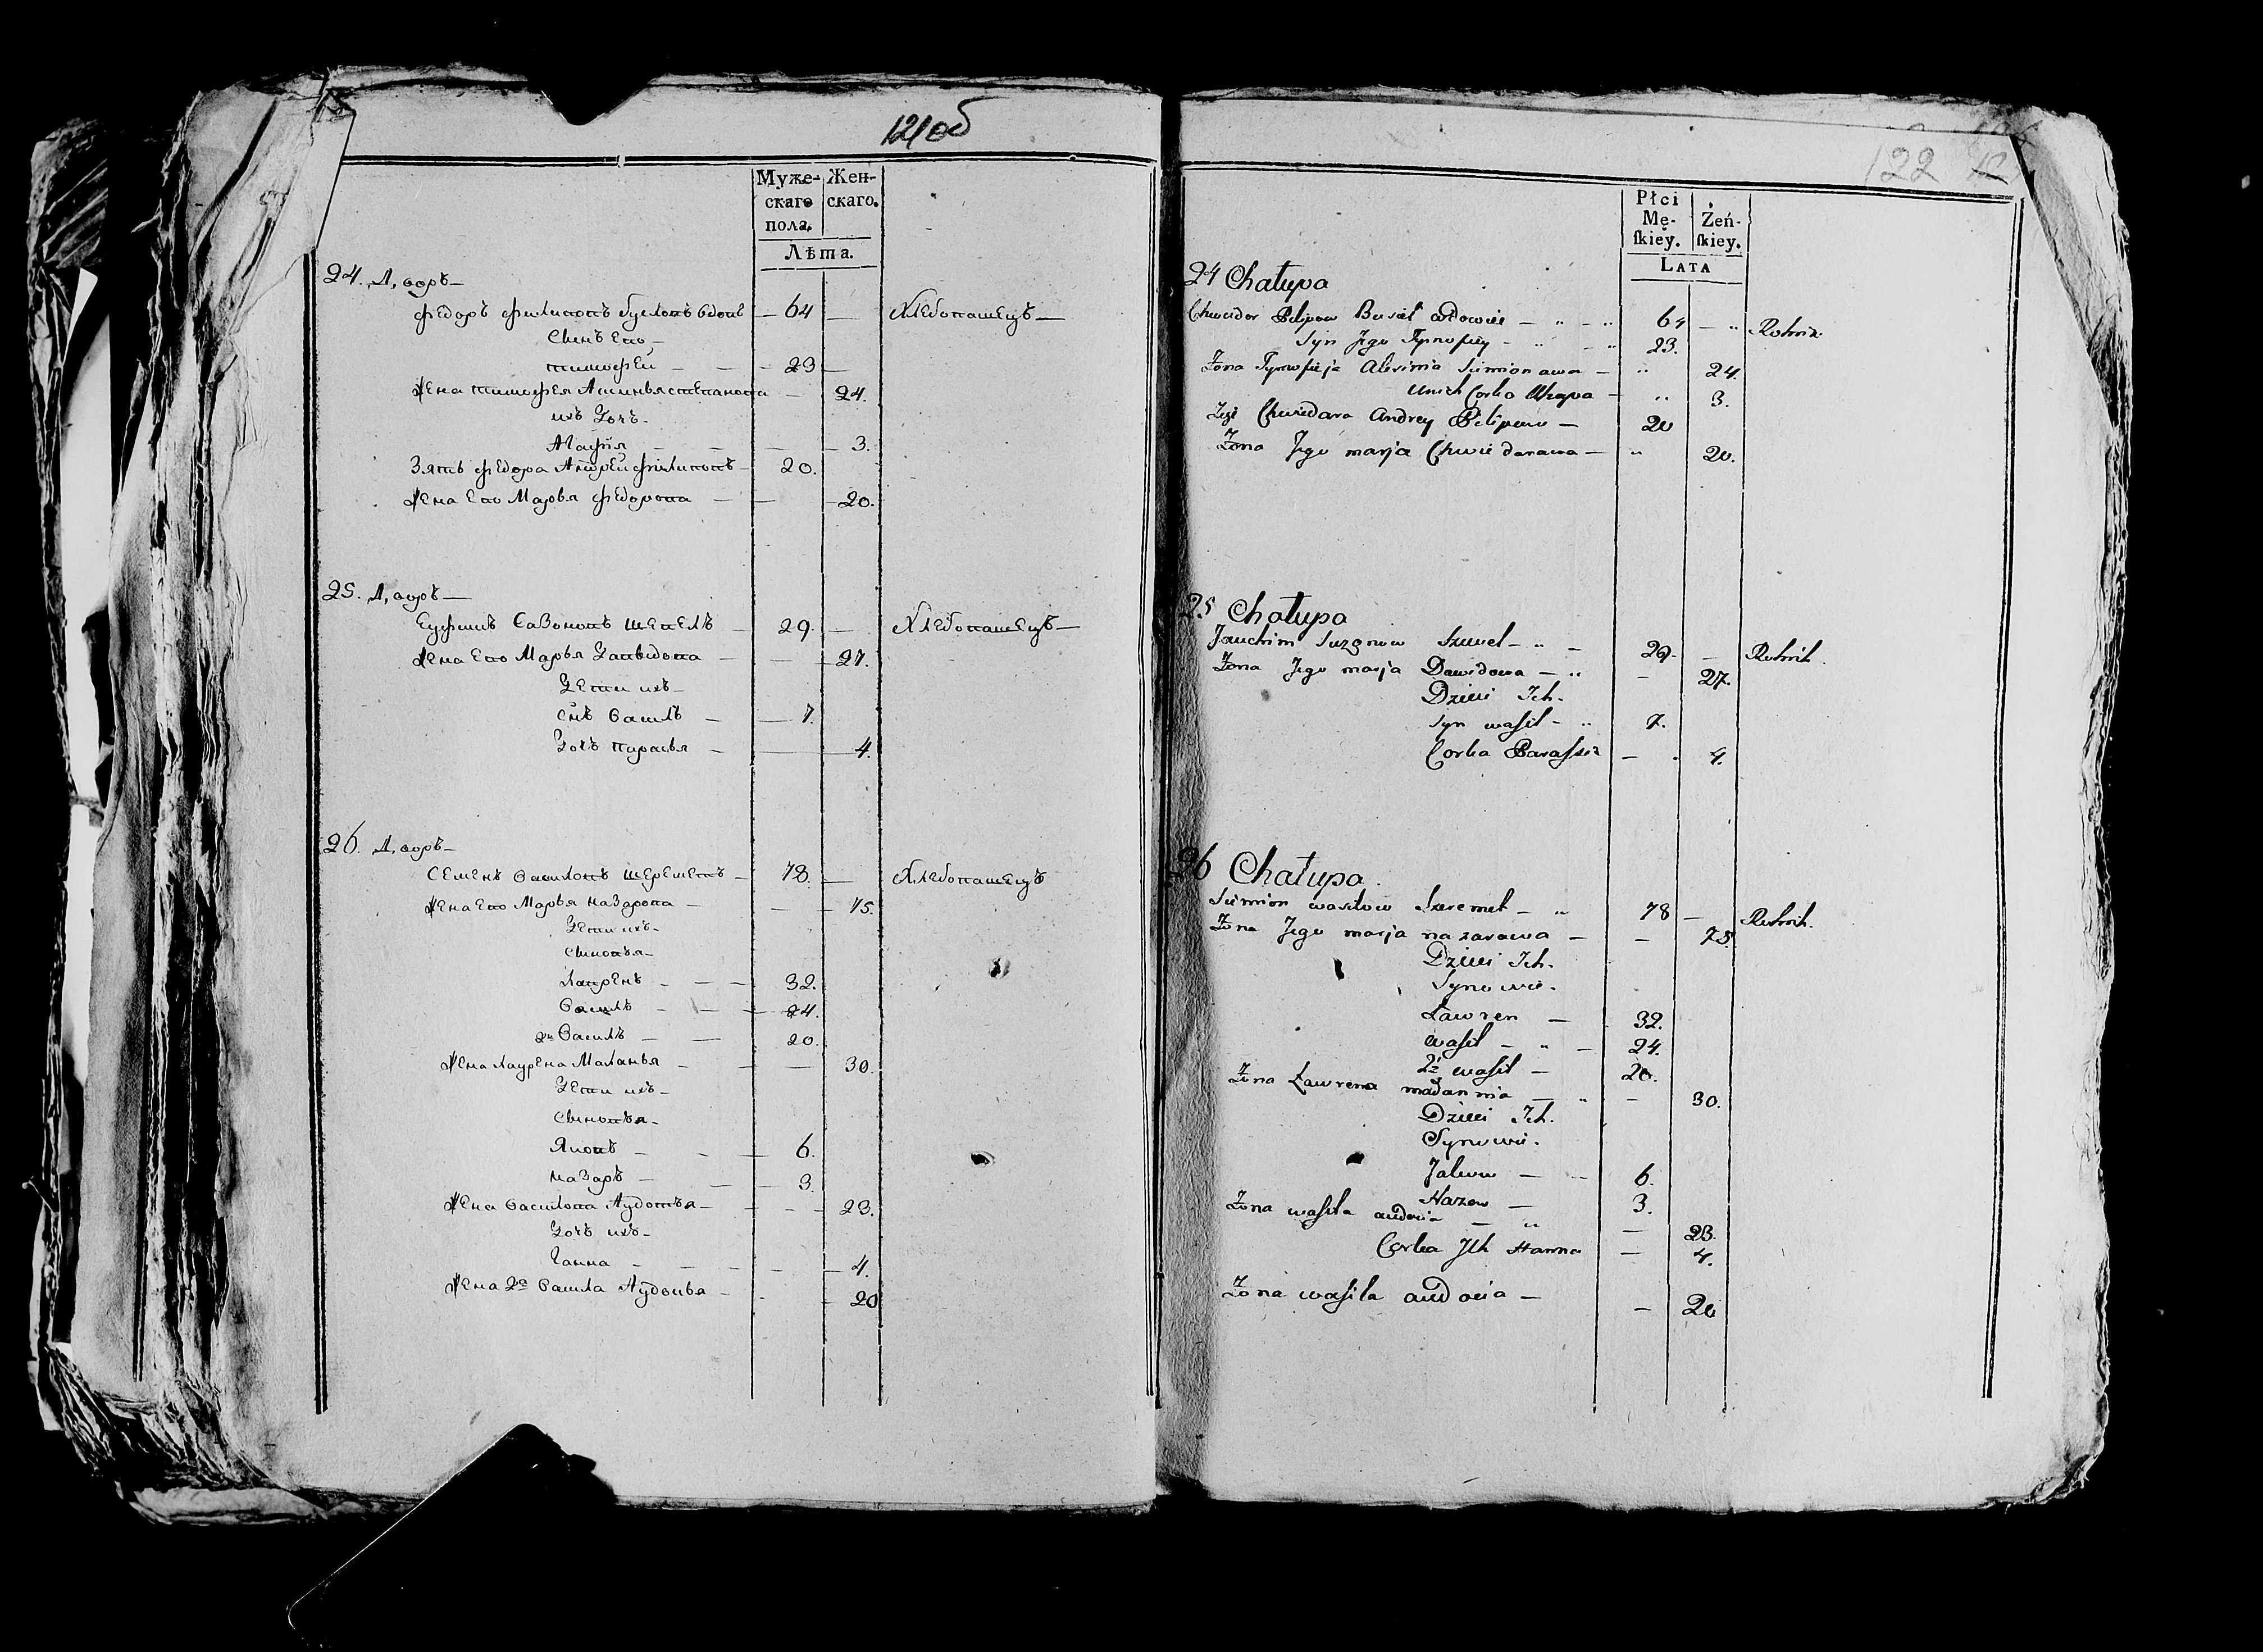 121об
Муже-
скаго
пола.
Жен-
скаго.
Лѣта.
24. Дворъ
Федоръ Филиповъ вдовъ — 64 — Хлебопашецъ —
Синъ Его
тимофей — 23 —
Жена тимофея степанова — 24.
ихъ Дочъ
Агафія — 3.
Зять Федора Андрей Филиповъ — 20.
Жена Его Марья Федорова — 20.
25. Дворъ —
Еуфимъ Сазоновъ Шевелъ — 29. — Хлебопашецъ —
Жена Его Марья Давыдова — 27.
Дети ихъ
Снъ Василъ — 7.
Дочъ Парасья — 4.
26. Дворъ —
Семенъ Василовъ Шереметъ — 78. — Хлебопашецъ
Жена Его Марья Назарова — 75.
Дети ихъ
Синовья
Лаврѣнъ — 32.
Василъ — 24.
2й Василъ — 20.
Жена Лаурена Маланья — 30.
Дети ихъ
Синовья
Яковъ — 6.
Назаръ — 3.
Жена Василова Аудотья — 23.
Дочъ ихъ
Ганна — 4.
Жена 2го Васила Аудотья — 20
122
Płci
Mę-
ſkiey.
Żeń-
ſkiey.
LATA
24 Chałupa
Chwiedor Pilipow wdowiec — 64 — Rolnik
Syn Jego Tymofiey — 23.
Żona Tymofieja Siemionawa — 24.
Corka — 3.
Chwiedara Andrey Pilipow — 20
Żona Jego marja Chwiedarawa — 20.
25 Chałupa
Jauchim Suzonow Szewel — 29. — Rolnik.
Żona Jego marja Dawidowa — 27.
Dzieci Ich.
Syn waſil — 7.
Corka Paraſzia — 4.
26 Chałupa.
Siemion wasilow Szeremet — 78 — Rolnik.
Żona Jego marja nazarawa — 75.
Dzieci Ich.
Synowie.
Ławren — 32.
waſil — 24.
2i waſil — 20.
Żona Ławrena małannia — 30.
Dzieci Ich.
Synowie.
Jakow — 6.
Nazar — 3.
Żona waſila audocia — 23.
Corka Ich Hanna — 4.
Żona waſila audocia — 20